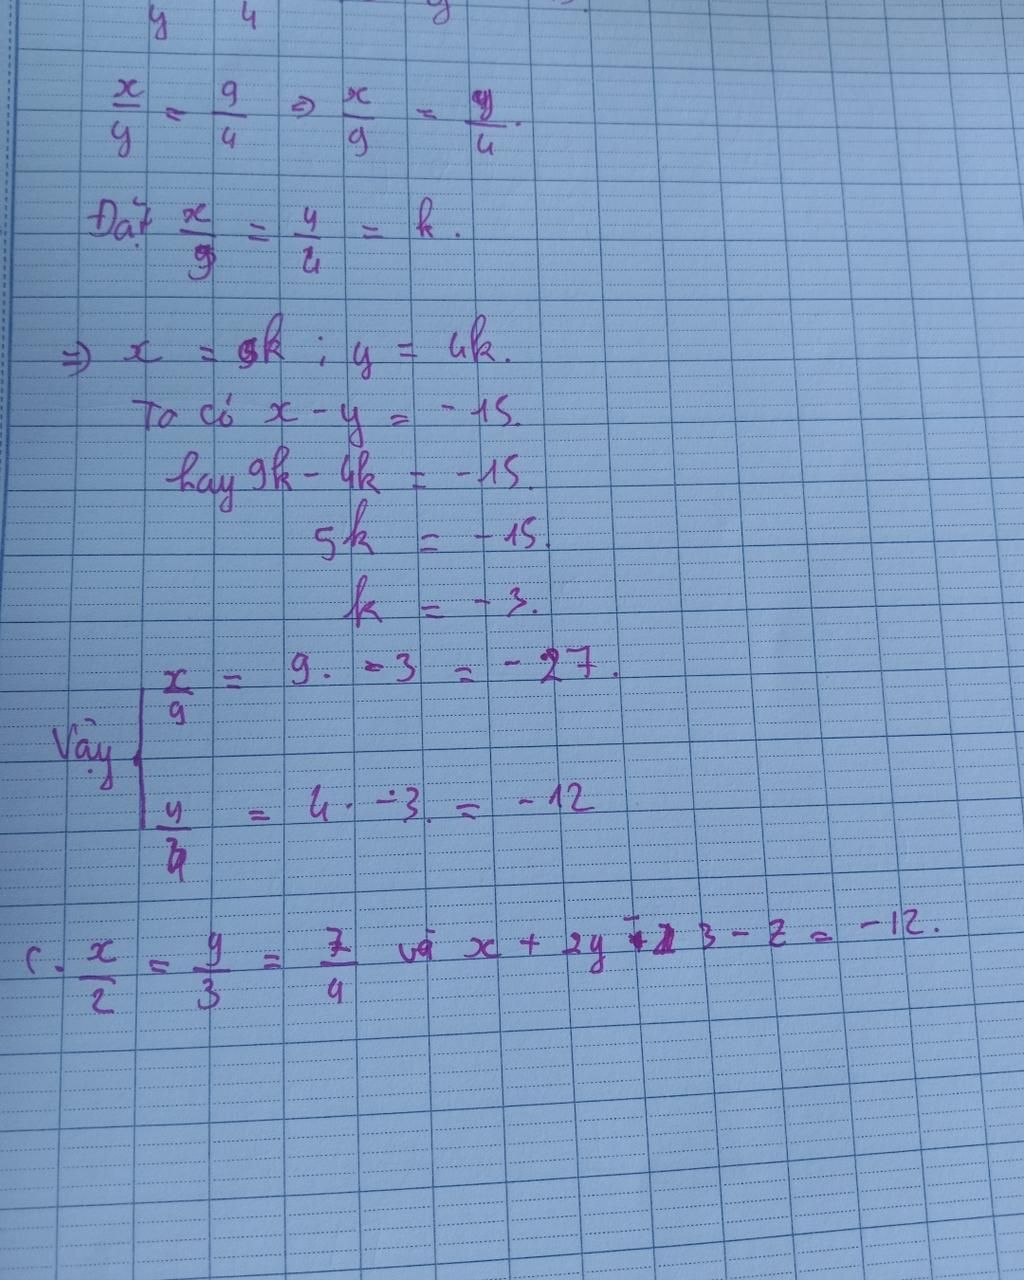 y 4 y
x/y = 9/4 => x/9 = y/4.
Đặt x/9 = y/4 = k.
=> x = 9k ; y = 4k.
Ta có x - y = -15.
hay 9k - 4k = -15.
5k = -15.
k = -3.
x/9 = 9. -3 = -27.
Vậy
y/4 = 4. -3. = -12
c. x/2 = y/3 = z/4 và x + 2y - 3 - z = -12.